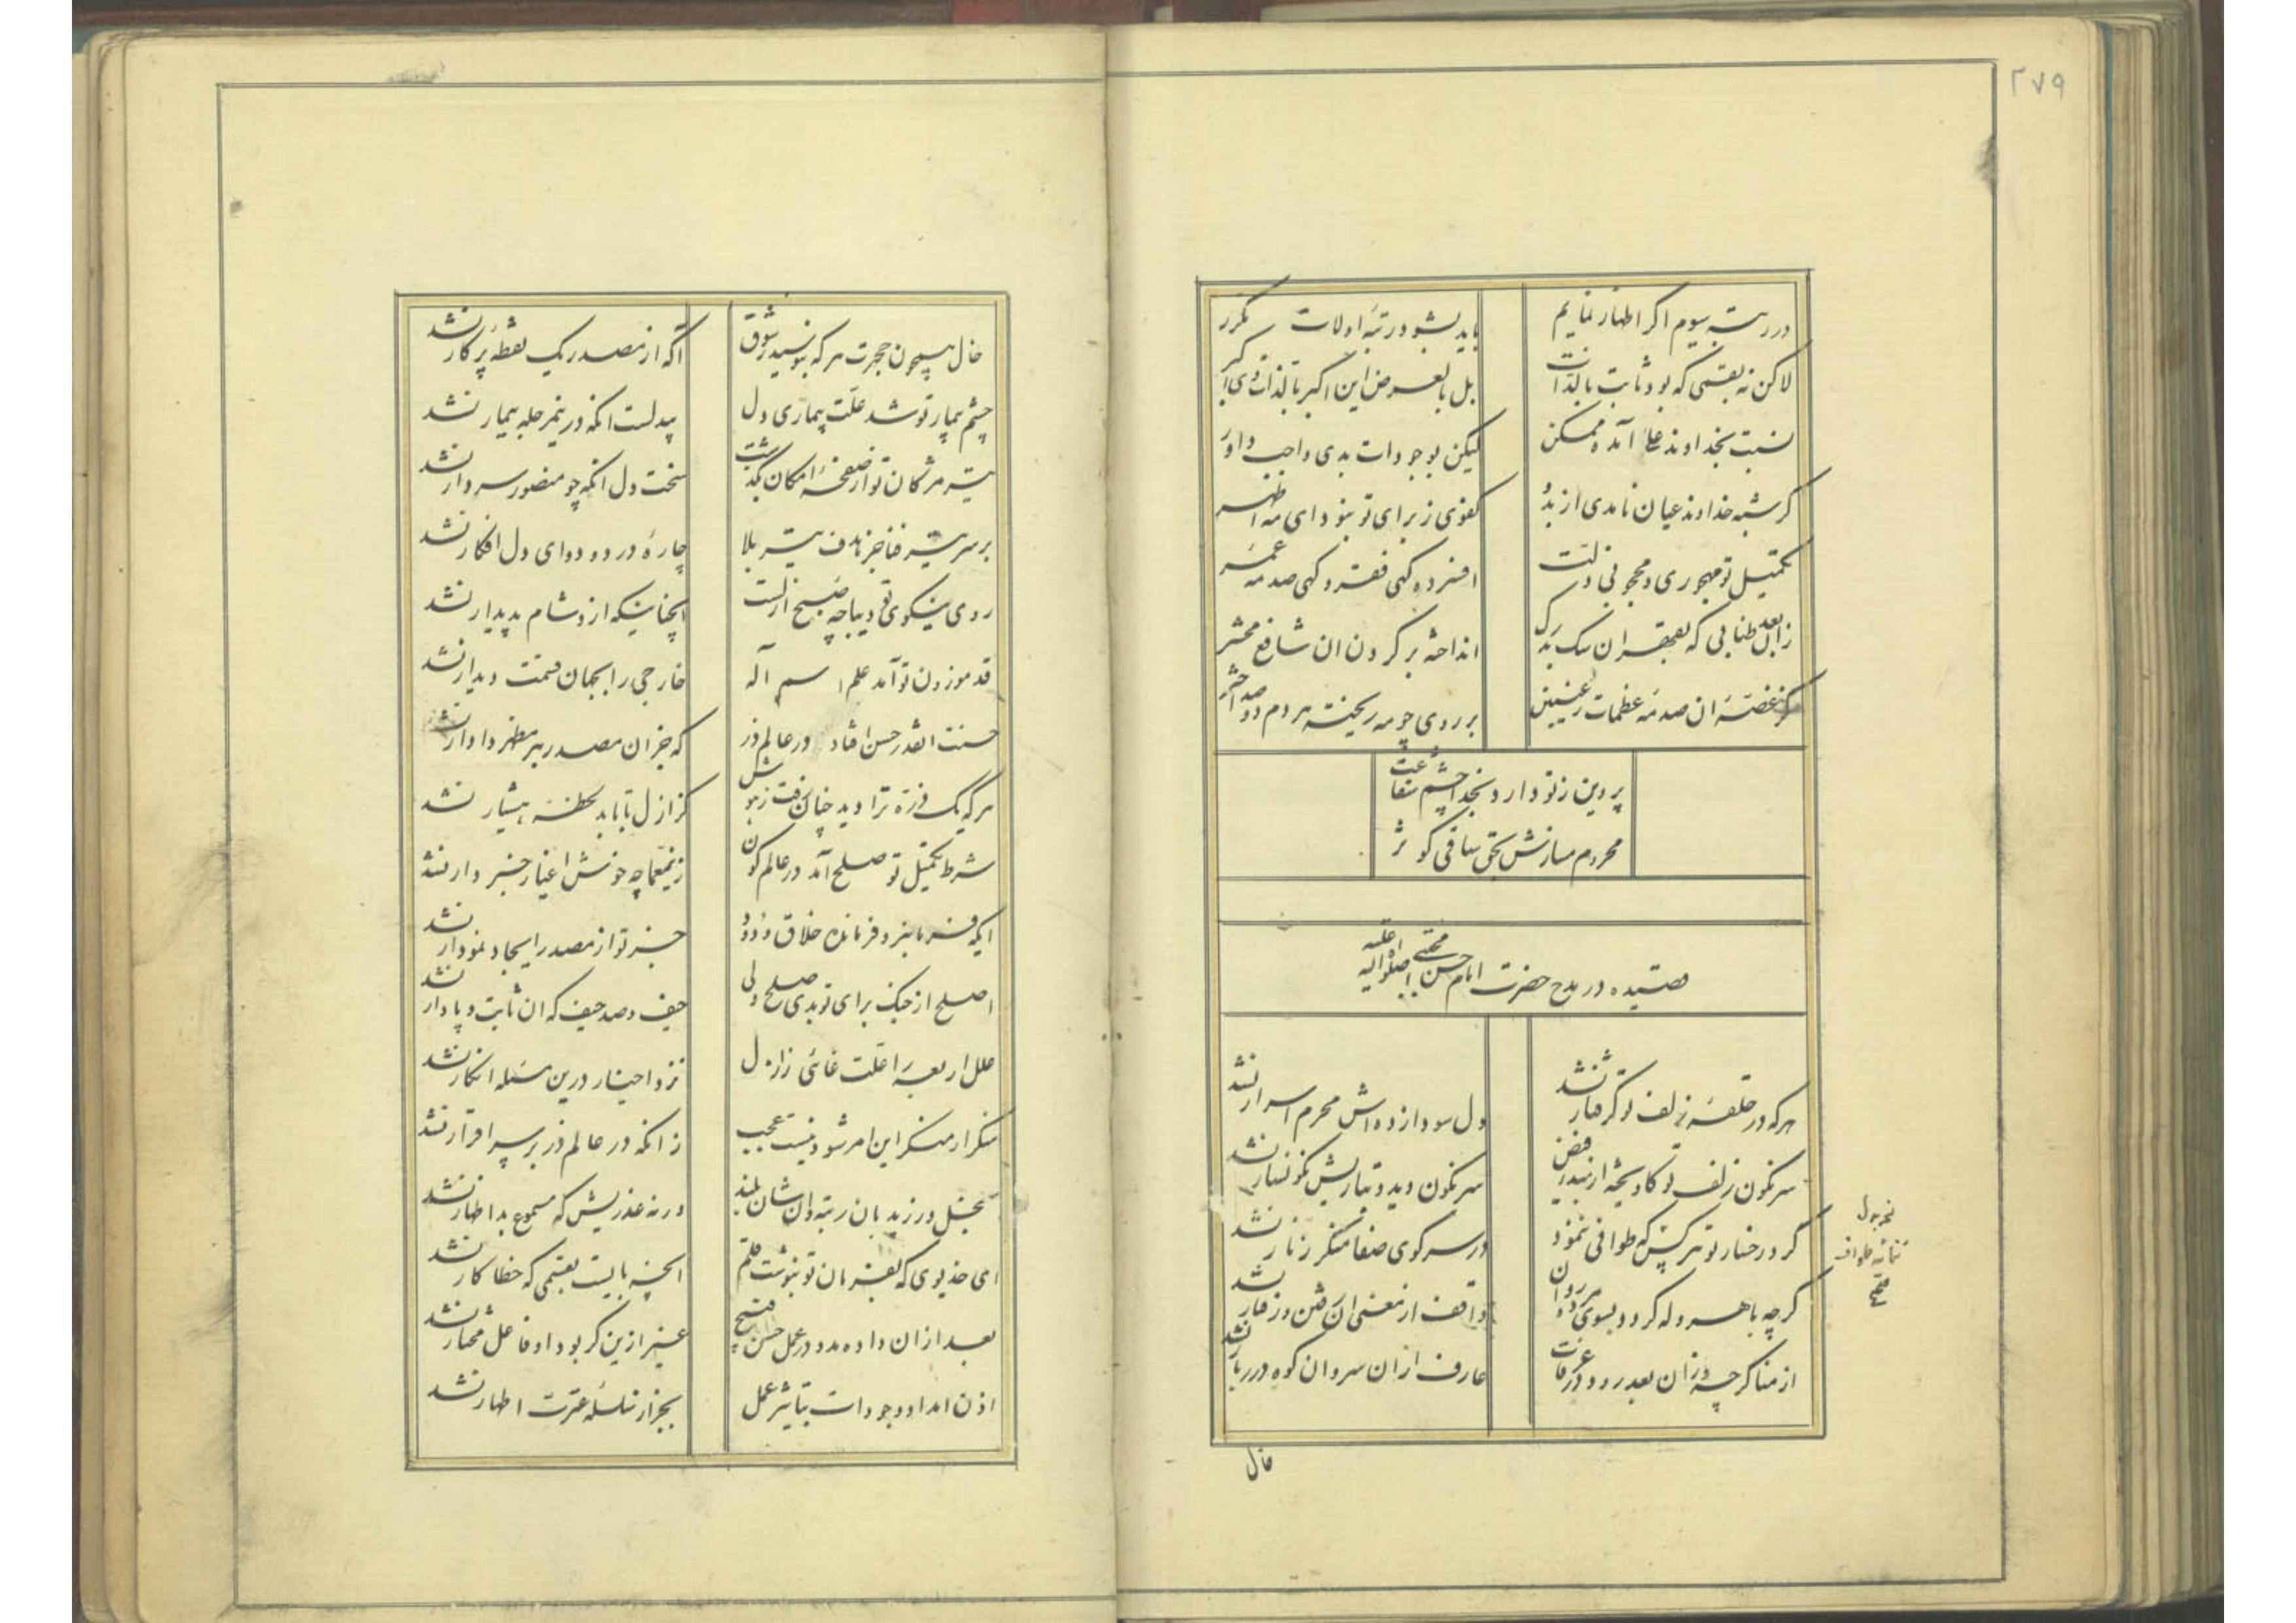 ۲۷۹
در رتبه سیوم اگر اظهار نمایم
باید بشود رتبه اولات مکرر
لاکن نه بقسمی که بود ثابت بالذات
بل بالعرض این اکبر بالذات
نسبت بخداوند علا آمد و ممکن
لیکن بوجودات بدی واجب و داور
گر شبه خداوند عیان نامدی از بدو
کفوی ز برای تو نبود ای مه اظهر
تکمیل تو مهجوری و محجوبی و ذلت
افسرده گهی فقر و گهی صدمه
زان بعد طنابی که بعقر ان سک بدرک
انداخته بر گردن ان شافع محشر
کز غصه ان صدمه عظمات
بر روی چو مه ریخته هر دم دو صد اختر
پروین ز تو دارد بخدا چشم شفاعت
محروم مسازش بحق ساقی کوثر
قصیده در مدح حضرت امام حسن مجتبی علیه
هر که در حلقه زلف تو گرفتار نشد
دل سودا زده اش محرم اسرار نشد
سرنگون زلف تو کاویخته از
سرنگون دید و بتاریش نگونسار نشد
گرد رخسار تو هر کس که طوافی ننمود
در سر کوی صفا منکر زنار نشد
گر چه با هروله گردد بسوی مروه روان
واقف از معنی ان رفتن و رفتار نشد
از منا گر چه ززان بعد رود در عرفات
عارف از ان سروان کوه دربار نشد
طواف
خال
خال هیچون حجرت هر که نبوسید ز شوق
آگه از مصدر یک نقطه پرکار نشد
چشم بیمار تو شد علت بیماری دل
بیدلست آنکه درین مرحله بیمار نشد
تیر مژگان تو از صفحه امکان بگذشت
سخت دل آنکه چو منصور سر دار نشد
بر سر تیر قضا جز هدف تیر بلا
چاره درد و دوای دل افکار نشد
روی نیکوی تو دیباچه صبح ازلست
انچنانیکه از و شام پدیدار نشد
قد موزون تو آمد علم اسم آله
خارجی را بجهان قسمت دیدار نشد
حسنت انقدر حسن افتاد در عالم ذر
که جز ان مصدر بر مظهر دادار نشد
هر که یک ذره ترا دید چنان رفت ز هوش
کز ازل تا بابد لحظه هشیار نشد
شرط تکمیل تو صلح آمد در عالم کون
زین معما چه خوش اغیار خبردار نشد
ایکه فرمانبر و فرمانده خلاق ودود
جز تو از مصدر ایجاد نمودار نشد
اصلح از جنگ برای تو بدی صلح ولی
حیف و صد حیف که ان ثابت و پادار نشد
علل اربعه را علت غائی ز ازل
نزد احبار درین مسئله انکار نشد
منکر ار منکر این امر شود نیست عجب
زانکه در عالم ذر بر سر اقرار نشد
بخل ورزید بان رتبه و ان شان بلند
ورنه عذریش که مسموع بد اظهار نشد
ای خدیوی که بفرمان تو ننوشت قلم
انچه بایست بقسمی که خطا کار نشد
بعد ازان داده مدد در عمل حسن و قبیح
غیر ازین گر بود او فاعل مختار نشد
اذن امداد وجودات بتاثیر عمل
بجز از سلسله عترت اطهار نشد